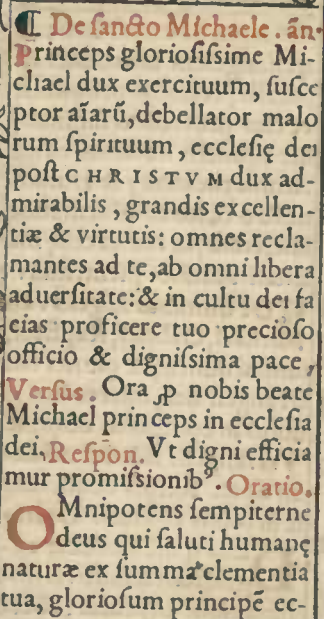 ¶ De ſancto Michaele. añ.
Princeps glorioſiſsime Mi-
chael dux exercituum, ſuſce
ptor aīarū, debellator malo
rum ſpirituum, eccleſię dei
poſt CHRISTVM dux ad-
mirabilis, grandis excellen-
tiæ & virtutis: omnes recla-
mantes ad te, ab omni libera
aduerſitate: & in cultu dei fa
cias proficere tuo precioſo
officio & digniſsima pace,
Verſus. Ora ꝓ nobis beate
Michael princeps in eccleſia
dei, Reſpon. Vt digni efficia
mur promiſsionibꝰ. Oratio.
OMnipotens ſempiterne
deus qui ſaluti humanę
naturæ ex ſumma clementia
tua, glorioſum principē ec-